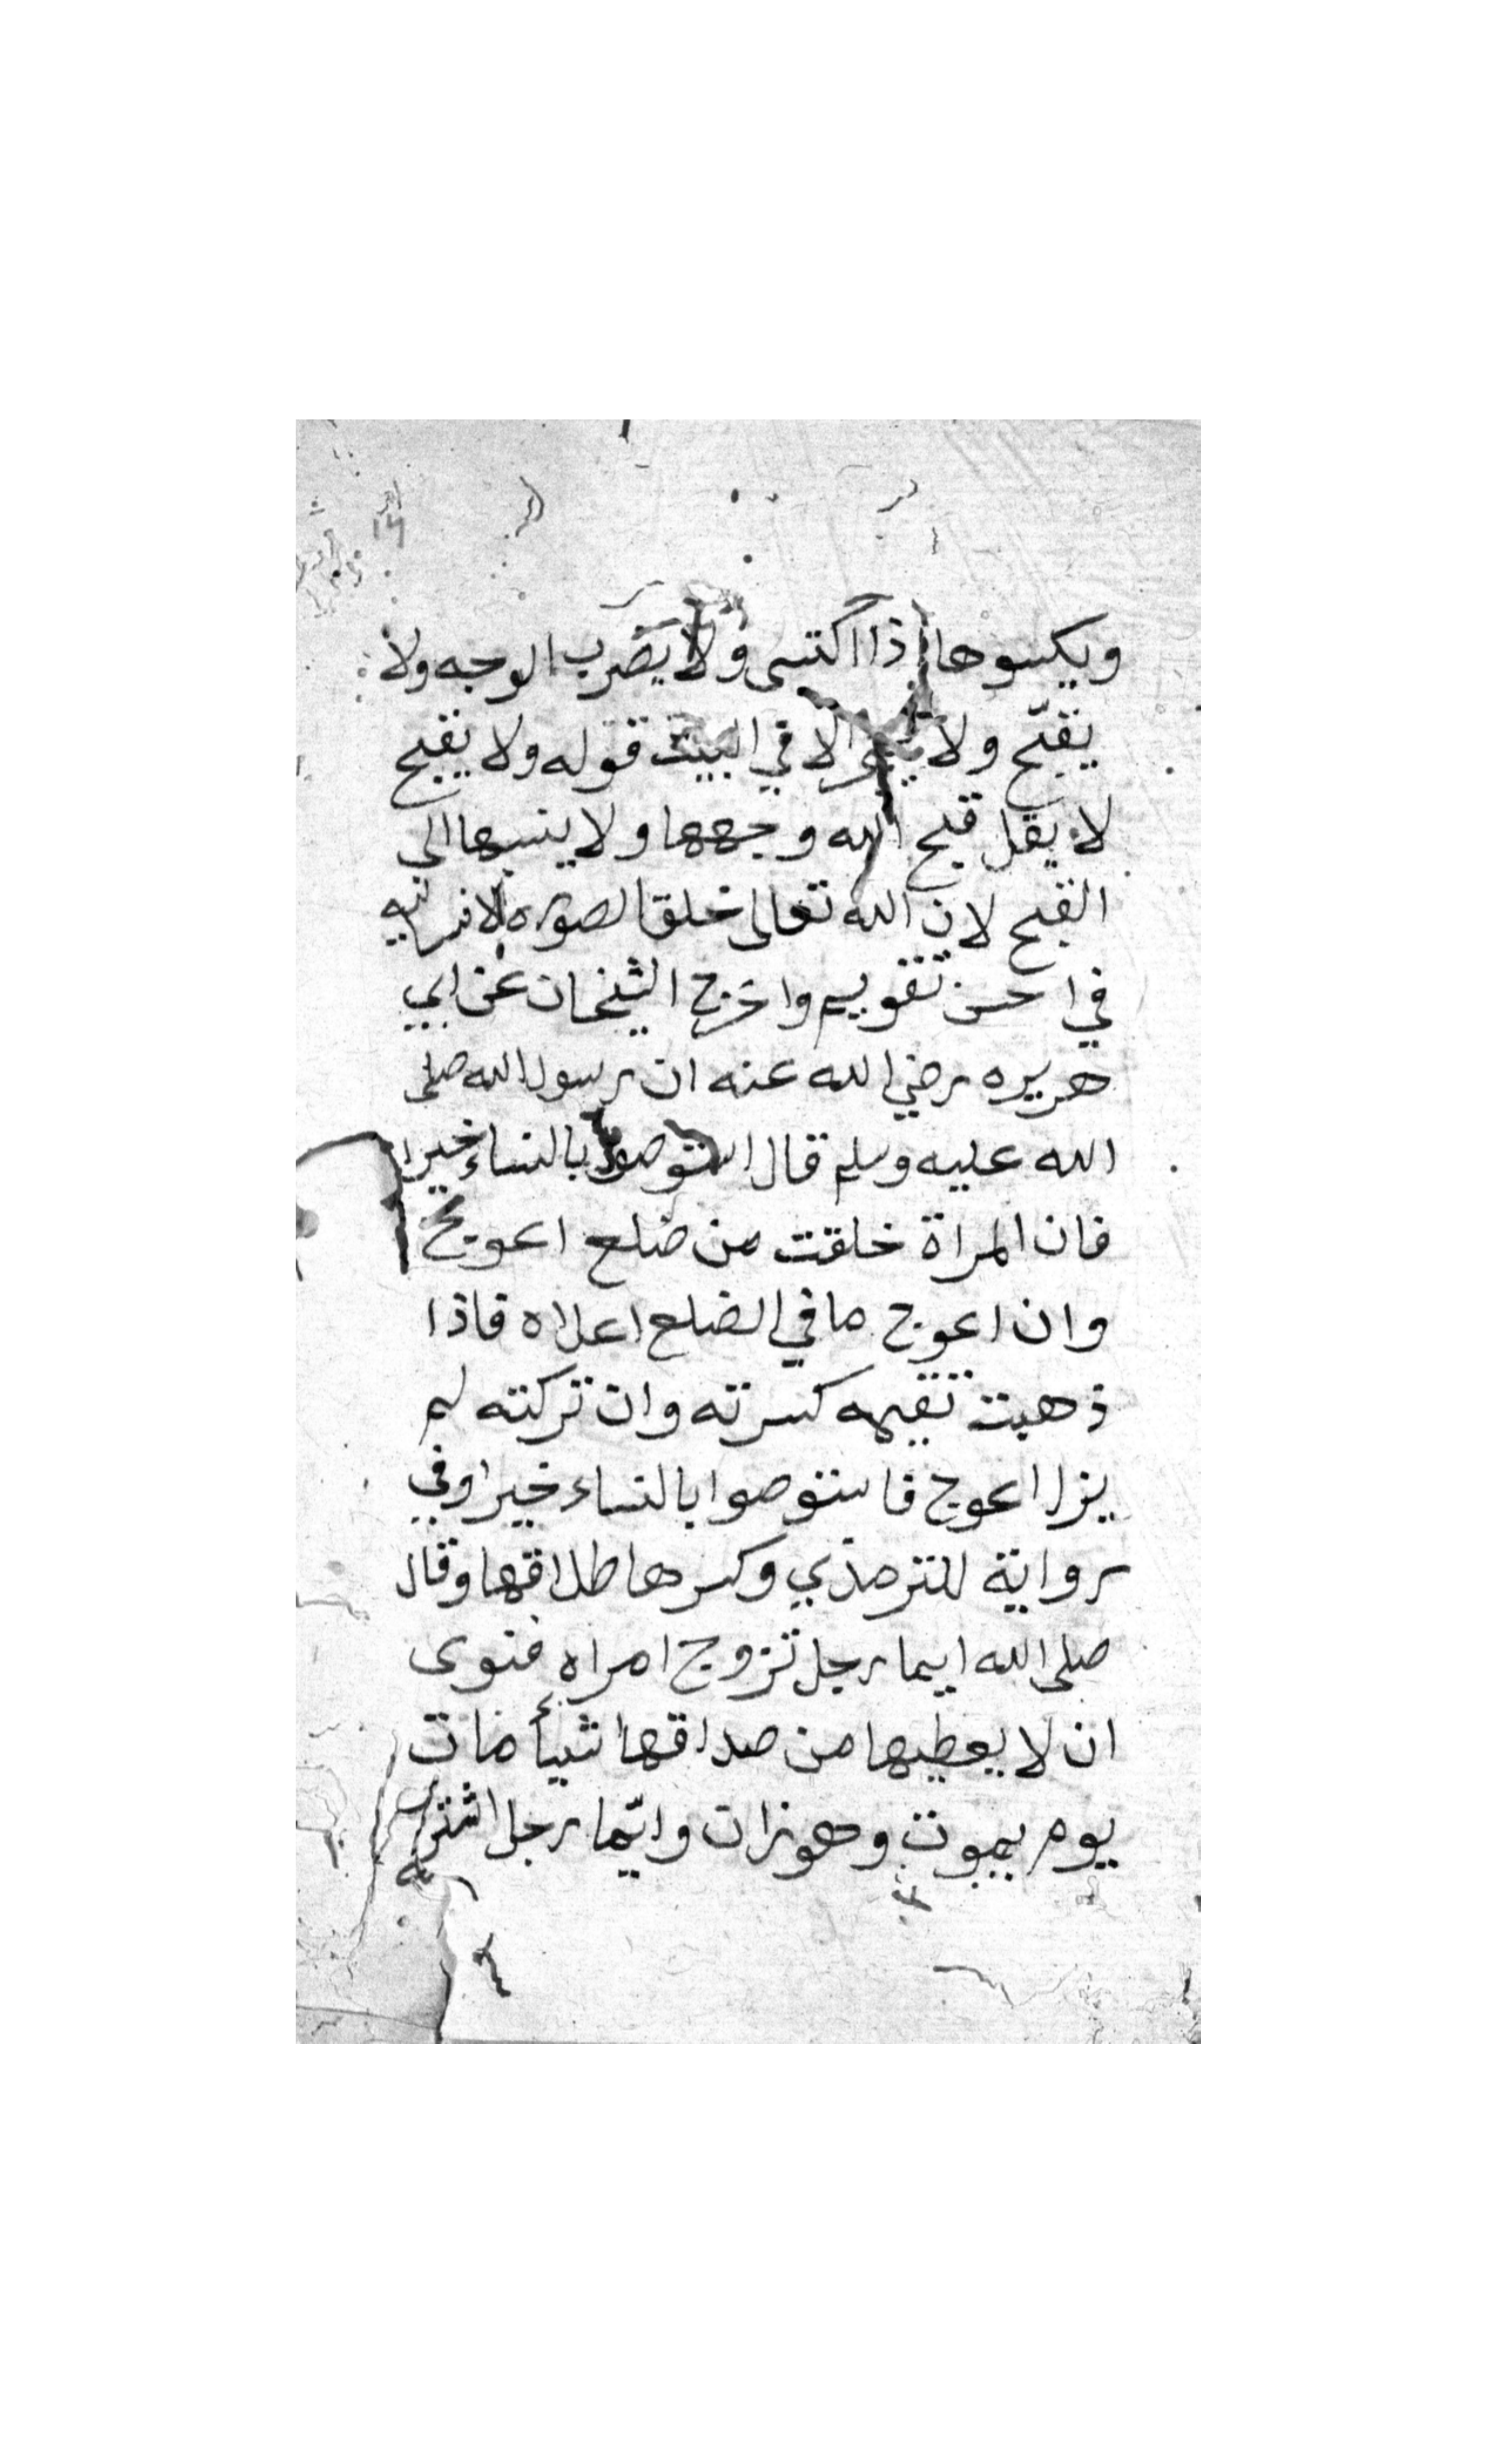 ويكسوها اذا اكتسى ولا يضرب الوجه ولا
يقبّح ولا يهجر الا في البيت قوله ولا يقبح
لا يقل قبح الله وجهها ولا ينسبها الى
القبح لان الله تعالى خلق الصوره الانسانيه
في احسن تقويم واخرج الشيخان عن ابي
هريره رضي الله عنه ان رسول الله صلى
الله عليه وسلم قال استوصوا بالنساء خيرا
فان المراة خلقت من ضلع اعوج
وان اعوج ما في الضلع اعلاه فاذا
ذهبت تقيمه كسرته وان تركته لم
يزل اعوج فاستوصوا بالنساء خيرا وفي
رواية للترمذي وكسرها طلاقها وقال
صلى الله ايما رجل تزوج امراه فنوى
ان لا يعطيها من صداقها شيأ مات
يوم يموت وهو زان وايّما رجل اشترى